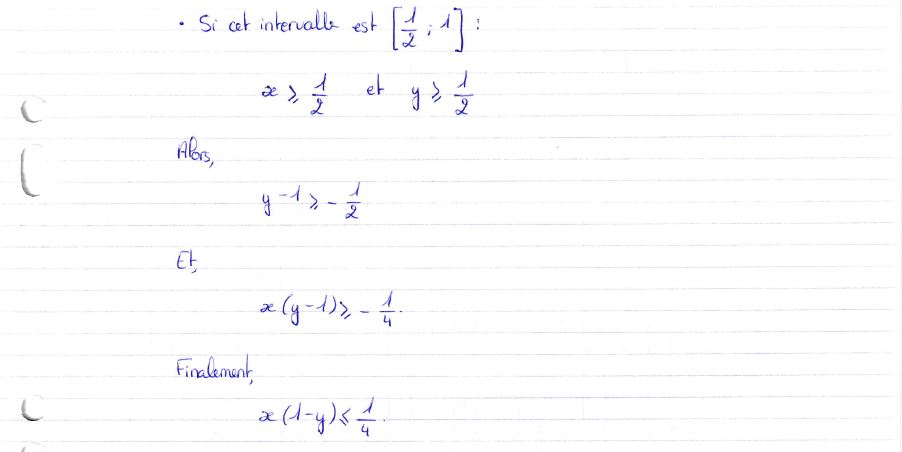 • Si cet intervalle est [1/2 ; 1] :
x ⩾ 1/2 et y ⩾ 1/2
Alors,
y - 1 ⩾ - 1/2
Et,
x (y - 1) ⩾ - 1/4.
Finalement,
x (1 - y) ⩽ 1/4.